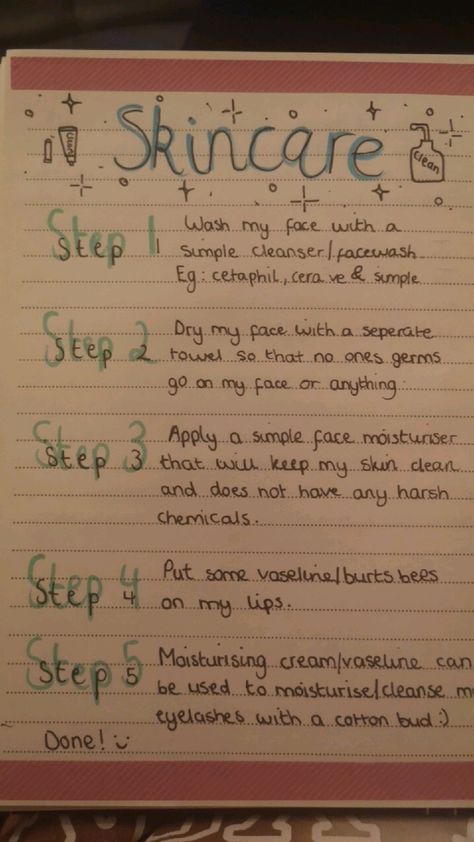 Skincare
clean
Step 1 Wash my face with a
simple cleanser/facewash
Eg: cetaphil, cera ve & simple
Step 2 Dry my face with a seperate
towel so that no ones germs
go on my face or anything.
Step 3 Apply a simple face moisturiser
that will keep my skin clean
and does not have any harsh
chemicals.
Step 4 Put some vaseline/burts bees
on my lips.
Step 5 Moisturising cream/vaseline can
be used to moisturise/cleanse m
eyelashes with a cotton bud :)
Done! :)